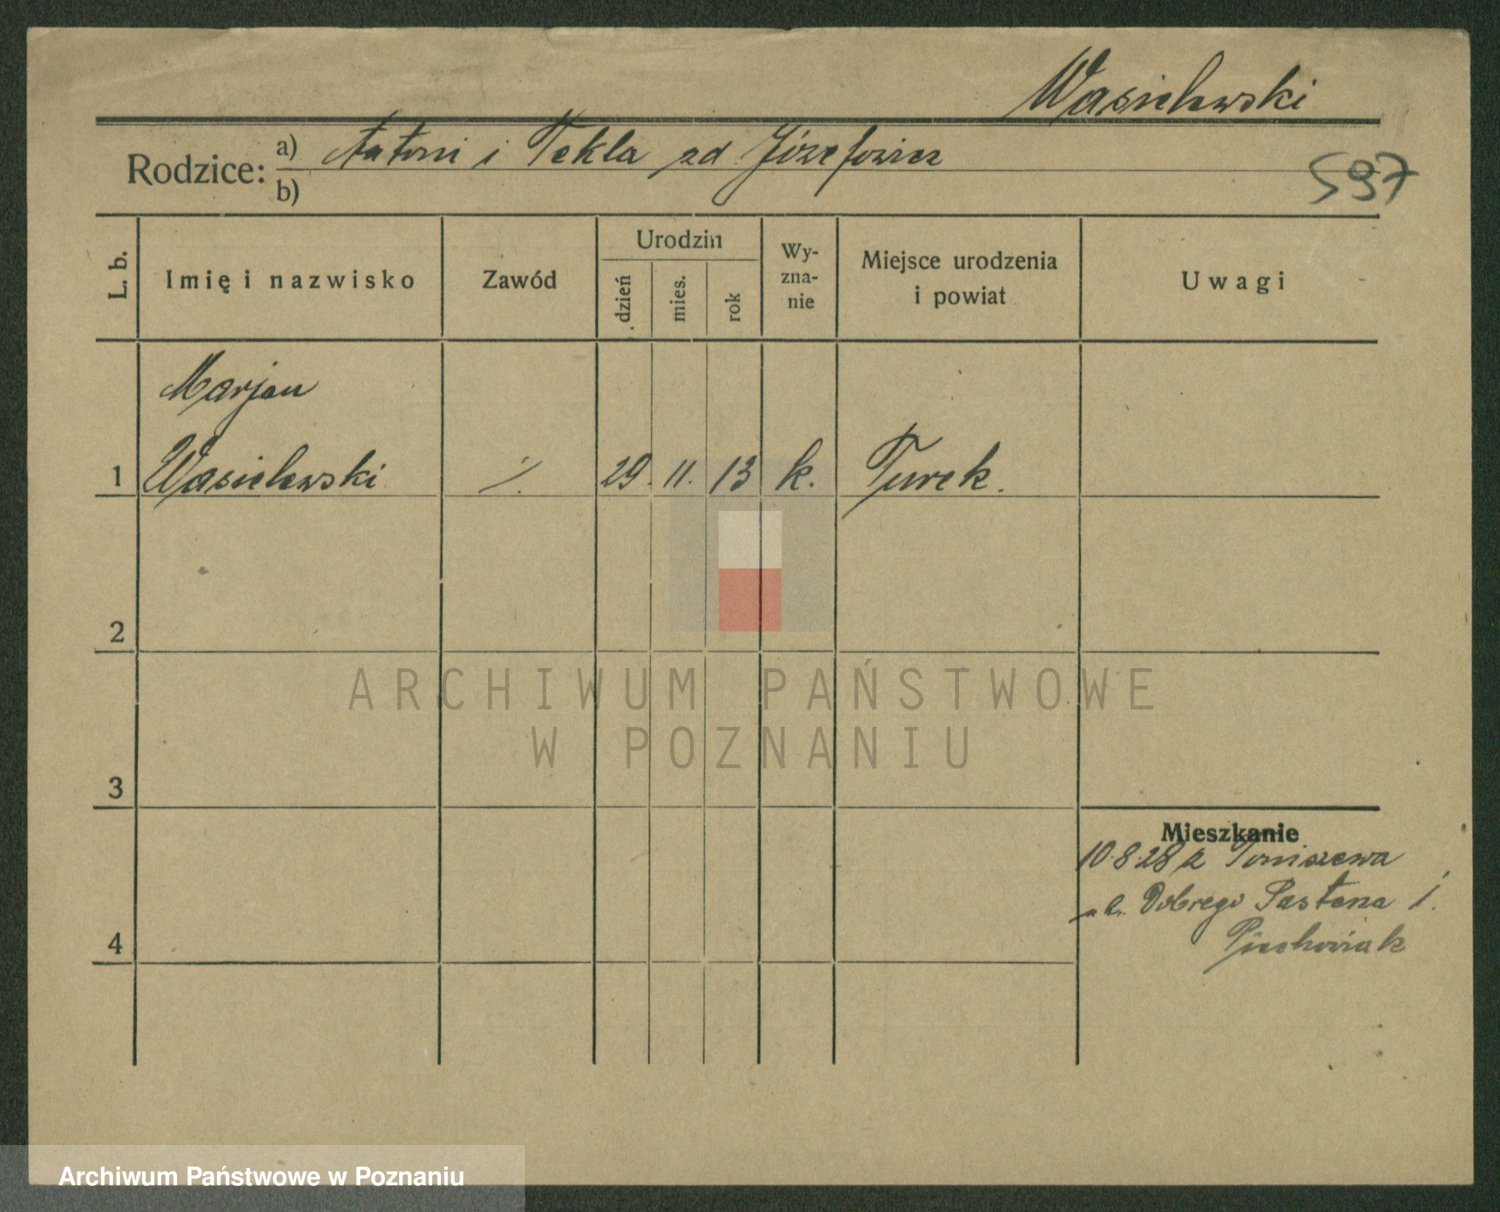 Wasielewski
Rodzice: a) Antoni i Tekla zd Józefowicz
b)
597
L. b.
Imię i nazwisko
Zawód
Urodzin
dzień
mies.
rok
Wy-
zna-
nie
Miejsce urodzenia
i powiat
Uwagi
Marjan
1 Wasielewski ./. 29. 11. 13 k. Turek.
2
ARCHIWUM PAŃSTWOWE
W POZNANIU
3
Mieszkanie
10.8.28 z Tomiszewa
ul. Dobrego Pasterza 1.
Piechowiak
4
Archiwum Państwowe w Poznaniu